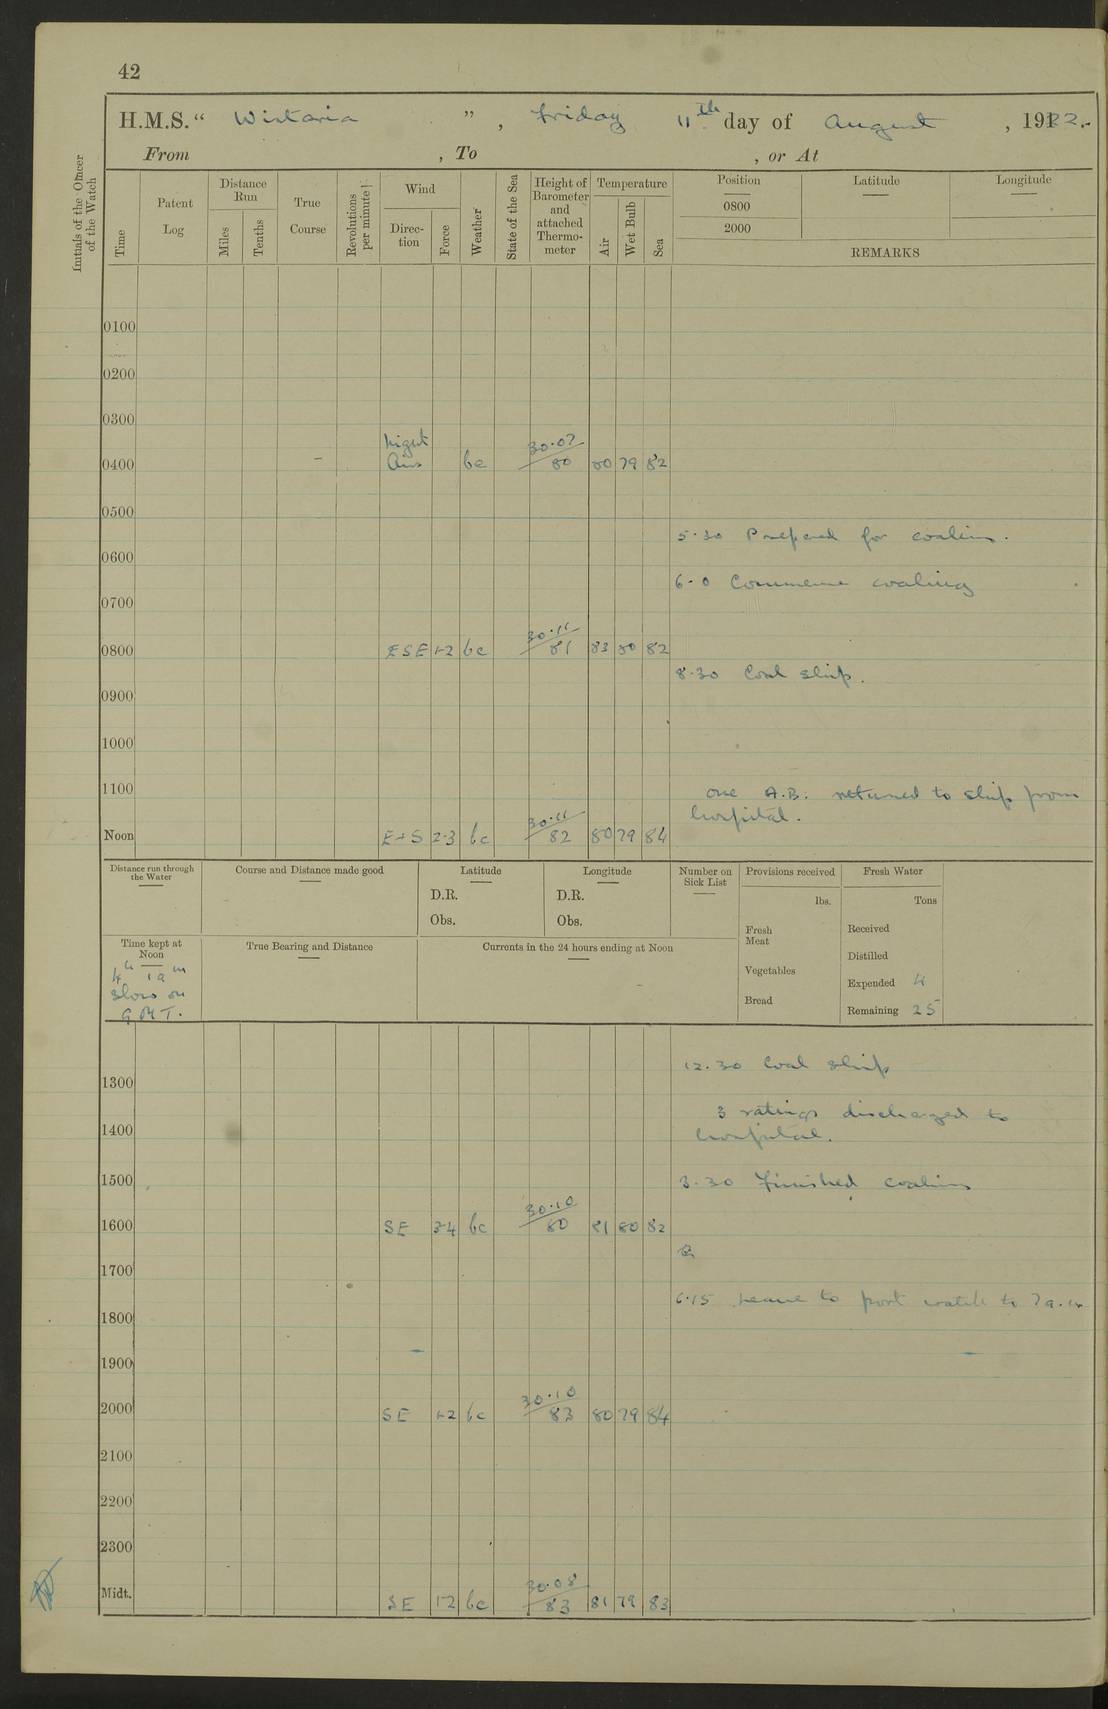 42
H.M.S. " Wistaria ", Friday 11th day of August, 1922.
From , To , or At
Initials of the Officer of the Watch
Time
Patent Log
Distance Run
Miles
Tenths
True Course
Revolutions per minute
Wind
Direc-tion
Force
Weather
State of the Sea
Height of Barometer and attached Thermo-meter
Temperature
Air
Wet Bulb
Sea
Position
Latitude
Longitude
0800
2000
REMARKS
0100
0200
0300
0400 Light Airs bc 30.07/80 80 79 82
0500
5.30 Prepared for coaling.
0600
6.0 Commence coaling
0700
0800 ESE 1-2 bc 30.11/81 83 80 82
8.30 Coal ship.
0900
1000
1100
one A.B. returned to ship from
hospital.
Noon E+S 2-3 bc 30.11/82 80 79 84
Distance run through the Water
Course and Distance made good
Latitude
D.R.
Obs.
Longitude
D.R.
Obs.
Number on Sick List
Provisions received
lbs.
Fresh Meat
Vegetables
Bread
Fresh Water
Tons
Received
Distilled
Expended 4
Remaining 25
Time kept at Noon
slow on
G.M.T.
True Bearing and Distance
Currents in the 24 hours ending at Noon
12.30 Coal ship
1300
3 ratings discharged to
1400
hospital.
1500
3.30 Finished coaling
1600 SE 3-4 bc 30.10/80 81 80 82
1700
6.15 Leave to port watch to 7 a.m.
1800
1900
2000 SE 1-2 bc 30.10/83 80 79 84
2100
2200
2300
Midt. SE 1-2 bc 30.08/83 81 79 83